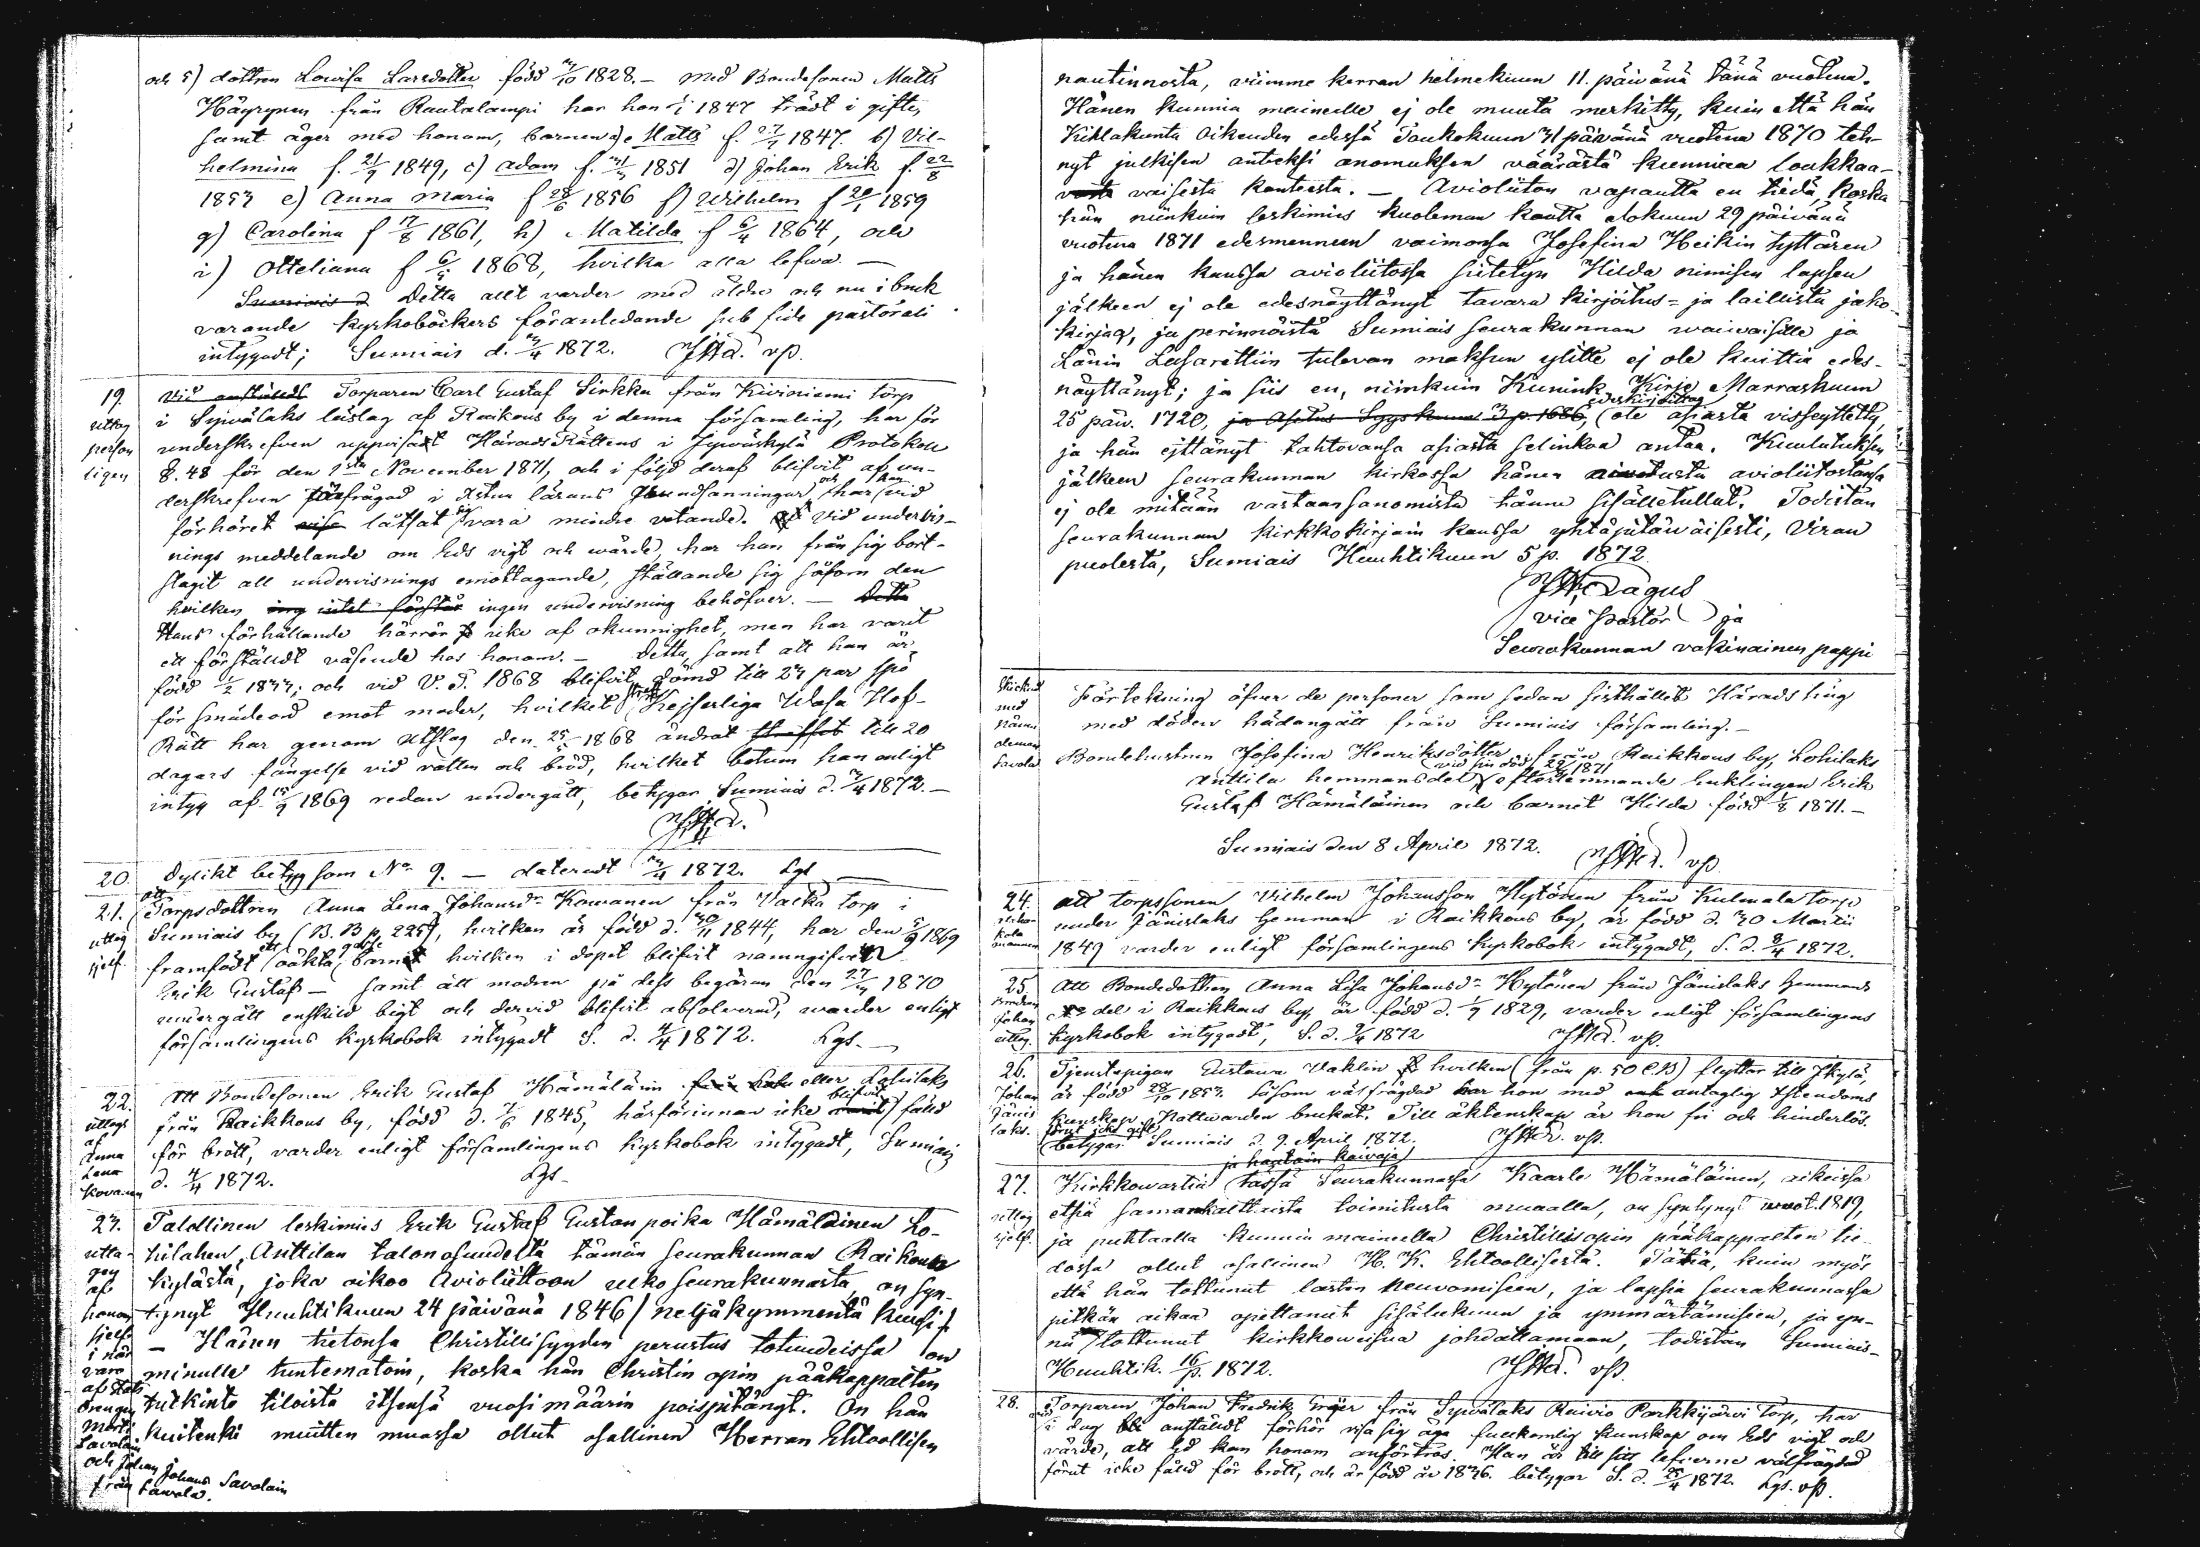 och 5) dottren Lovisa Larsdotter född 1828. – med Bondesonen Matts
Häyrynen från Rautalampi har hon i 1847 trädt i gifte,
samt äger med honom, barnen a) Matts f. 1847. b) Vil-
helmina f. 21/9 1849, c) Adam f. 1851 d) Johan Erik f. 22/8
1853 e) Anna Maria f 28/6 1856 f) Wilhelm f 1859
g) Carolina f 17/8 1861, h) Matilda f 6/4 1864, och
i) Otteliana f 1868, hvilka alla lefwa. –
Sumiais d Detta allt varder med äldre och nu i bruk
varande kyrkoböckers föranledande sub fide pastorali
intygadt; Sumiais d. 1872. vp.
19. Torparen Carl Gustaf Sirkka från Kiviniemi torp
uttag i Syväläks läslag af Raikous by i denna församling, har för
person underskrefven uppvisadt HäradsRättens i Jyväskylä Protokoll
ligen §. 48 för den 1sta November 1871, och i följd deraf blifvit af un-
derskrefven förfrågad i Xstna lärans grundsanningar, och har han vid
förhöret låtsat sig vara mindre vetande. Vid undervis-
nings meddelande om Eds vigt och wärde, har han från sig bort-
slagit all undervisnings emottagande, ställande sig såsom den
hvilken ing intet förstår ingen undervisning behöfver. – Detta
Hans förhållande härrör icke af okunnighet, men har varit
ett förstäldt väsende hos honom. – Detta, samt att han är
född 1833; och vid V. T. 1868 blifvit dömd till 23 par spö
för smädeord emot moder, hvilket straff Kejserliga Wasa Hof-
Rätt har genom Utslag den 1868 ändrat straffet till 20
dagars fängelse vid vatten och bröd, hvilket botum han enligt
intyg af 1869 redan undergått, betygar Sumiais d. 1872. –
20. Dylikt betyg som No 9. – dateradt 1872. Lgs
21. att Torpsdottren Anna Lena Johansdr Kowanen från Valka torp i
uttag Sumiais by (B. B p. 225), hvilken är född d. 30/11 1844, har den 5/9 1869
sjelf. framfödt ett oäkta gosse barn hvilken i dopet blifvit namngifven
Erik Gustaf – samt att modren på dess begäran den 1870
undergått enskild bigt och dervid blifvit absolverad, warder enligt
församlingens kyrkobok intygadt S. d. 4/4 1872. Lgs. –
22. Att Bondesonen Erik Gustaf Hämäläin eller Lohilaks
uttags från Raikkous by, född d. 1845, härförinnan icke blifvit fäld
af
Anna för brott, varder enligt församlingens kyrkobok intygadt, Sumiais
Lena
Kovanen d. 4/4 1872. Lgs.
23. Talollinen leskimies Erik Gustaf Gustav poika Hämäläinen Lo-
utta- hilahen, Anttilan talon osuudelta tämän seurakunnan Raikoun
gen
af kylästä, joka aikoo Avioliittoon ulko seurakunnasta, on syn-
honom tynyt Huuhtikuun 24 päivänä 1846/ neljäkymmentä kuusi/.
sjelf
i när – Hänen tietonsa Christillisyyden perustus totuudeissa on
varo minulle tuntematoin, koska hän Christin opin pääkappalten
af
drengen tutkinto tiloista itsensä vuosi määrin poispitänyt. On hän
Matts
Savolain kuitenki muitten muassa ollut osallinen Herran Ehtoollisen
och Johan Johans Savolain
från Lawola.
nautinnosta, viimme kerran helmekuun 11. päivänä tänä vuotena.
Hänen kunnia maineelle ej ole muuta merkitty, kuin että hän
Kihlakunta Oikeuden edessä Toukokuun 31 päivänä vuotena 1870 teh-
nyt julkisen anteeksi anomuksen väärästä kunniaa loukkaa-
vasta vaisesta kanteesta. – Avioliiton vapautta en tiedä, koska
hän niinkuin leskimies kuoleman kautta elokuun 29 päivänä
vuotena 1871 edesmenneen vaimonsa Josefina Heikin tyttären
ja hänen kanssa avioliitossa siitetyn Hilda nimisen lapsen
jälkeen ej ole edesnäyttänyt tavara kirjoitus= ja laillista jako
kirjaa, ja perinnöistä Sumiais seurakunnan waiwaisille ja
Länin Lasarettiin tulevan maksun ylitte ej ole kuittia edes-
näyttänyt; ja siis en, niinkuin Kunink. Kirje Marraskuun
25 päiv. 1720, ja Asetus Syyskuun 3 p. 1686, edeskirjoittaa, ole asiasta visseyttetty,
ja hän ejttänyt tahtovansa asiasta selinkoa antaa. Kuulutuksen
jälkeen seurakunnan kirkossa hänen aiwotusta avioliitostansa
ej ole mitään vastaansanomista tänne sisälletullut. Todistan
seurakunnan kirkkokirjain kanssa yhtäpitäwäisesti, Viran
puolesta, Sumiais Huuhtikuun 5 p. 1872
Lagus
vice Pastor ja
Seurakunnan vakinainen pappi
Skickad Förtekning öfver de personer som sedan sisthållet Härads ting
med
Nämn med döden hädangått från Sumiais församling. –
deman
Savola Bondehustrun Josefina Henriksdotter från Raikkous by, Lohilaks
Anttila hemmansdel vid sin död 29/8 1871 efterlemnande Enklingen Erik
Gustaf Hämäläinen och barnet Hilda född 1/8 1871. –
Sumiais den 8 April 1872. vp.
24. att torpssonen Vilhelm Johansson Hytönen från Kulmala torp
under Jänislaks hemman i Raikkous by, är född d. 30 Martii
1849 varder enligt församlingens kyrkobok intygadt, S. d. 8/4 1872.
25. att Bondedottren Anna Lisa Johansdr Hytönen från Jänislaks hemmans
Bonden
Johan del i Raikkous by, är född d. 1829, varder enligt församlingens
uttag. kyrkobok intygadt, S. d. 9/4 1872 vp.
26. Tjenstepigan Gustawa Waklin hvilken (från p. 50 C.B) flyttar till Jkylä,
Johan är född 28/10 1853. Såsom välfrägdad har hon med antaglig Xstendoms
Jänis
laks. kunskap Nattvarden brukat. Till äktenskap är hon fri och hinderlös.
förut icke gift
betygar Sumiais d. 9. April 1872. vp.
ja haudain kaivaja
27. Kirkkowartia tässä Seurakunnassa Kaarle Hämäläinen, aikeissa
uttag etsiä samankalttaista toimitusta muualla, on syntynyt vuot. 1819,
sjelf. ja puhtaalla kunnia maineella Christillisopin pääkappalten tie-
dossa ollut osallinen H. K. Ehtoollisesta. Tätiä, kuin myös
että hän tottunut lasten neuvomiseen, ja lapsia seurakunnassa
pitkän aikaa opettanut sisälukuun ja ymmärtämiseen, ja en-
nä tottunut kirkkoweisua johdattamaan, todistan Sumiais-
Huuhtik. 16 p. 1872. vp.
28. Torparen Johan Fredrik Gröjer från Syväläks Raivio Parkkijärvi torp, har
i dag vid anstäldt förhör visa sig äga fullkomlig kunskap om Eds vigt och
värde, att Ed kan honom anförtros. Han är till sitt lefverne välfrägdad
förut icke fäld för brott, och är född år 1836. betygar S. d. 25/4 1872. Lgs. vp.